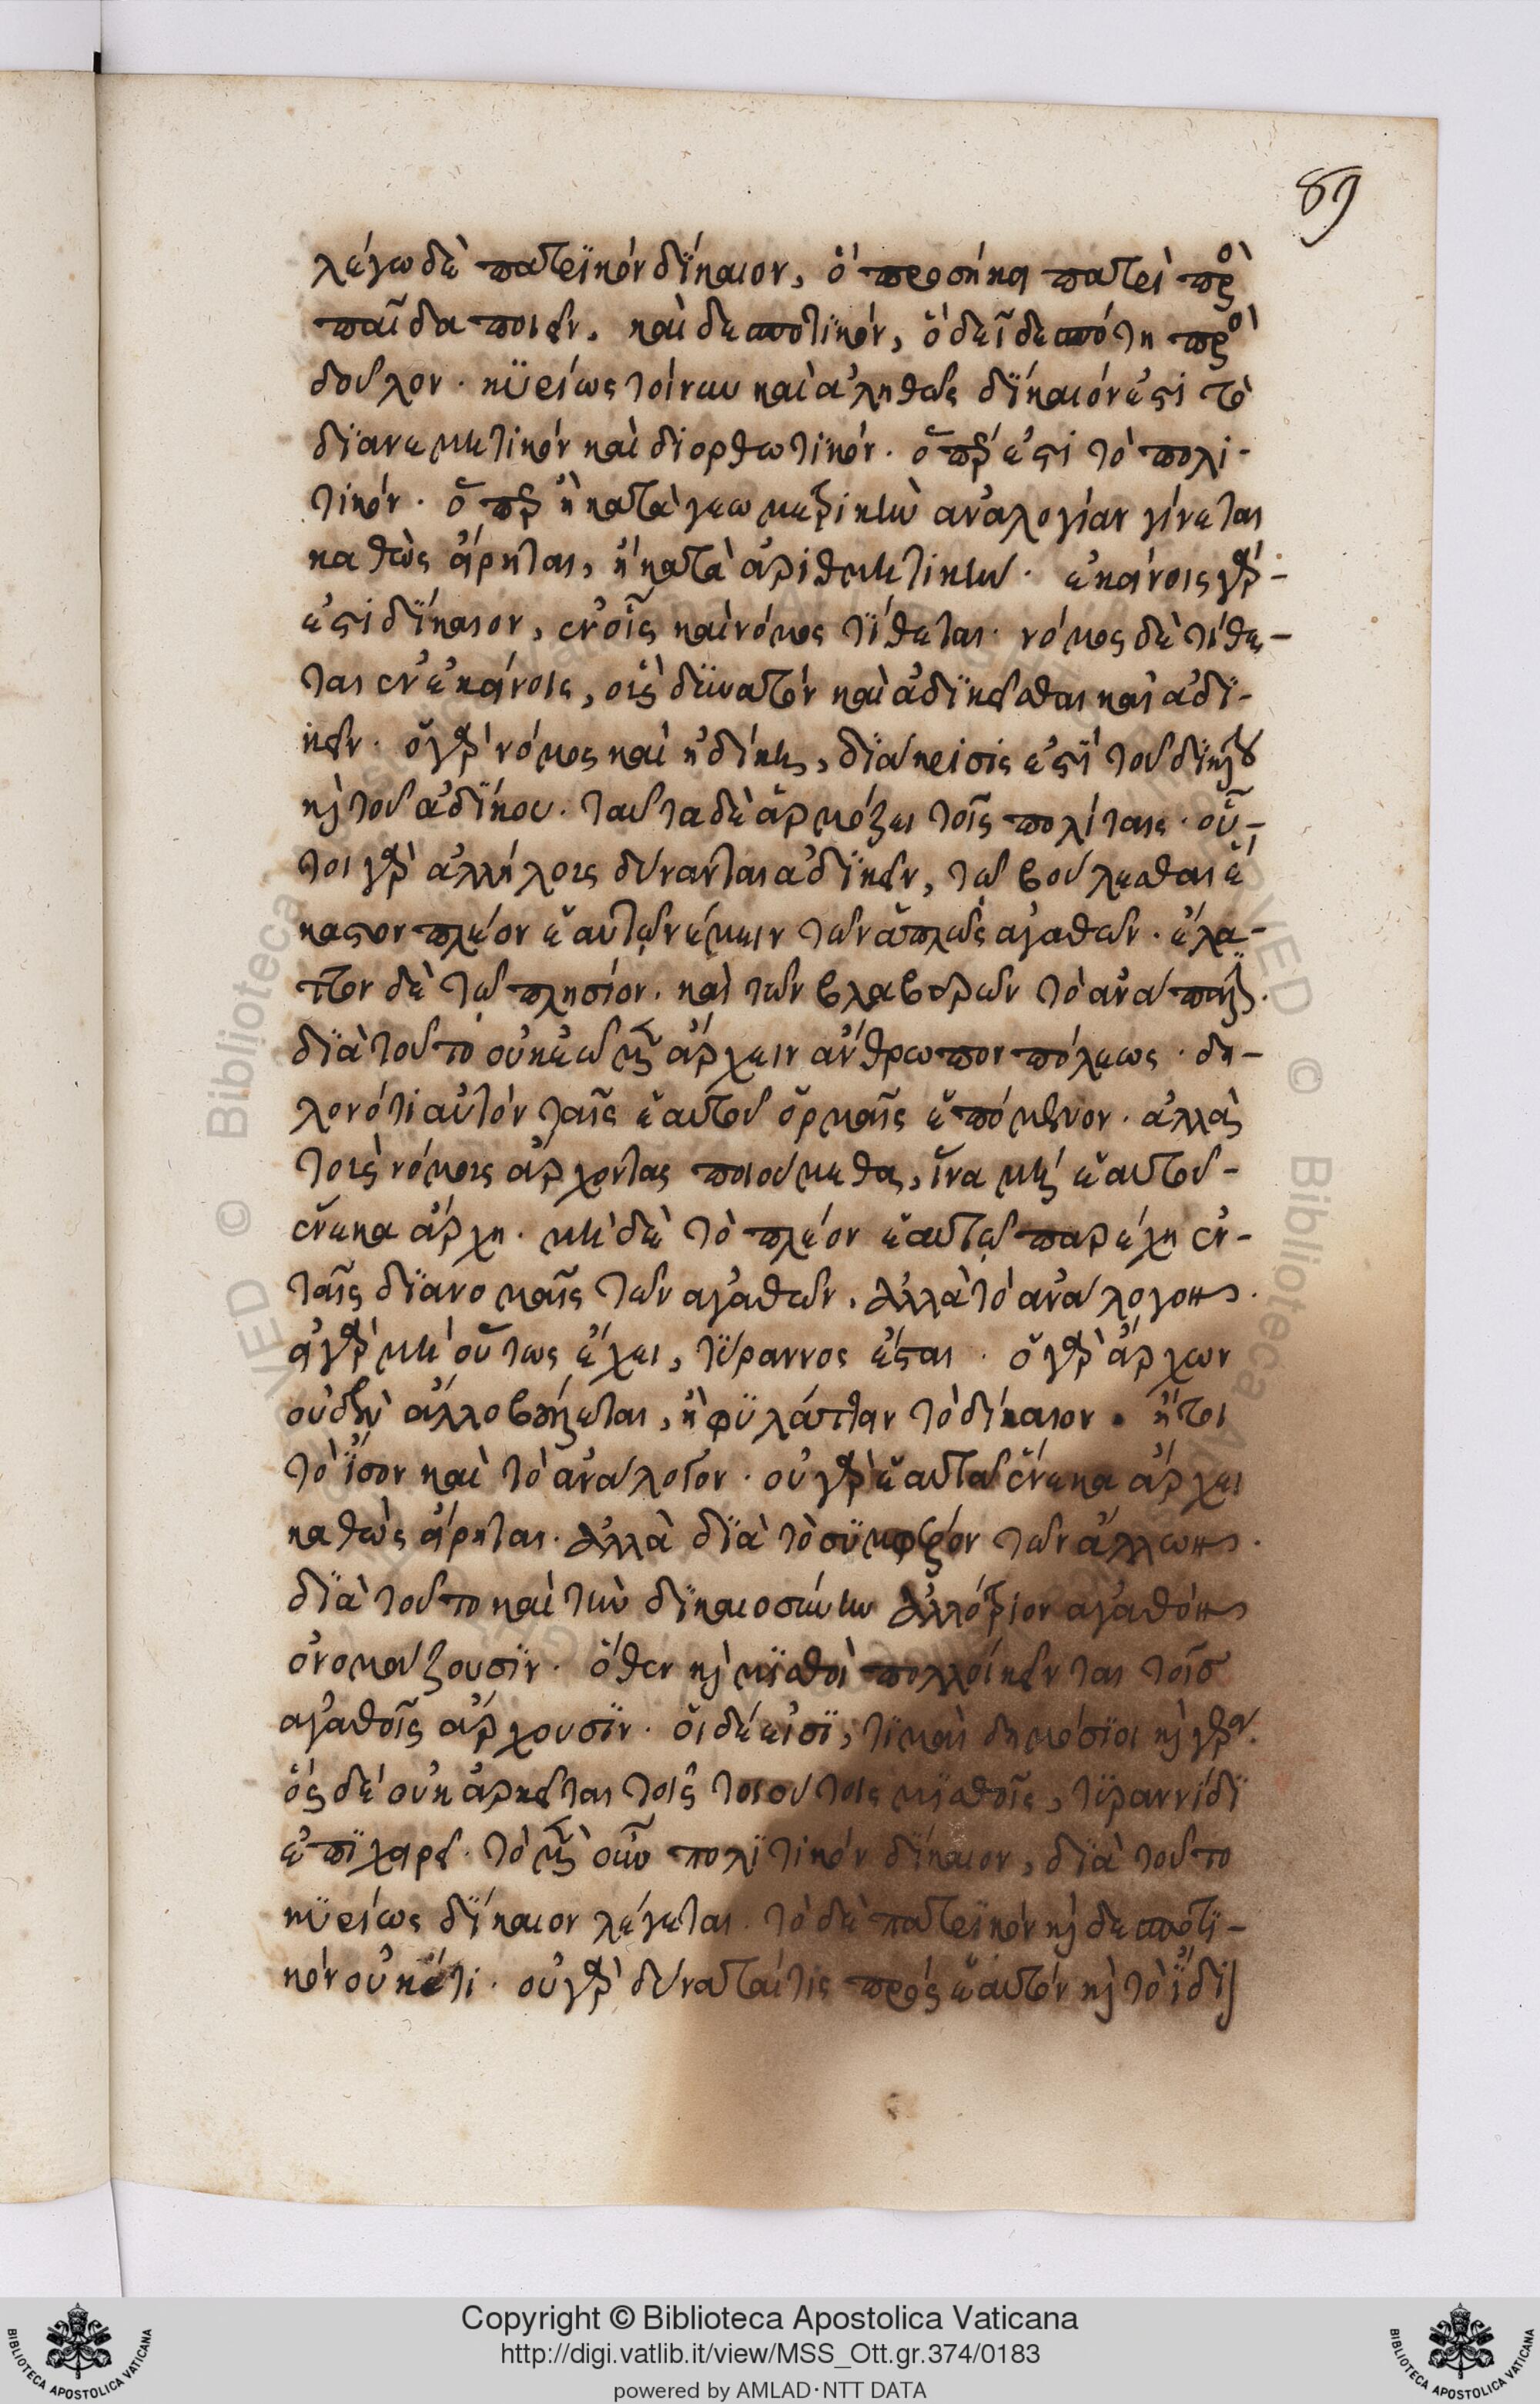 89
λέγω δὲ πατρϊκὸν δΐκαιον, ὃ προσήκει πατρὶ πρὸς
παῖδα ποιεῖν. καὶ δεσποτϊκόν, ὃ δεῖ δεσπότη πρὸς
δοῦλον. κϋρίως τοίνυν καὶ ἀληθῶς δΐκαιόν ἐστι τὸ
δϊανεμητικὸν καὶ διορθωτϊκόν. ὅπερ ἐστὶ τὸ πολι-
τικόν. ὅπερ ἢ κατὰ γεωμετρικὴν ἀναλογίαν γίνεται
καθὼς εἴρηται, ἢ κατὰ ἀριθμητικήν. ἐκείνοις γάρ-
ἐστι δΐκαιον, ἐν οἷς καὶ νόμος τΐθεται. νόμος δὲ τίθε-
ται ἐν ἐκείνοις, οἷς δϋνατὸν καὶ ἀδϊκεῖσθαι καὶ ἀδϊ-
κεῖν. ὁ γὰρ νόμος καὶ ἡ δίκη, δϊάκρισίς ἐστϊ τοῦ δϊκαίου
καὶ τοῦ ἀδΐκου. ταῦτα δὲ ἁρμόζει τοῖς πολίταις. οὗ-
τοι γὰρ ἀλλήλοις δύνανται ἀδϊκεῖν, τῷ βούλεσθαι ἕ
καστον πλέον ἑαυτῷ νέμειν τῶν ἁπλῶς ἀγαθῶν. ἔλα-
ττον δὲ τῷ πλησίον. καὶ τῶν βλαβερῶν τὸ ἀνάπαλιν.
δϊὰ τοῦτο οὐκ ἐῶμεν ἄρχειν ἄνθρωπον πόλεως. δη-
λονότι αὐτὸν ταῖς ἑαυτοῦ ὁρμαῖς ἑπόμενον. ἀλλὰ
τοῖς νόμοις ἄρχοντας ποιούμεθα, ἵνα μὴ ἑαυτοῦ-
ἕνεκα ἄρχη. μὴ δὲ τὸ πλέον ἑαυτῷ παρέχη ἐν-
ταῖς δϊανομαῖς τῶν ἀγαθῶν. ἀλλὰ τὸ ἀνάλογον.
εἰ γὰρ μὴ οὕτως ἔχει, τΰραννος ἔσται. ὁ γὰρ ἄρχων
οὐδὲν ἄλλο βούλεται, ἢ φϋλάττειν τὸ δίκαιον. ἤτοι
τὸ ἴσον καὶ τὸ ἀνάλογον. οὐ γὰρ ἑαυτοῦ ἕνεκα ἄρχει
καθὼς εἴρηται. ἀλλὰ δϊὰ τὸ σϋμφέρον τῶν ἄλλων.
δϊὰ τοῦτο καὶ τὴν δϊκαιοσύνην ἀλλότριον ἀγαθὸν
ὀνομάζουσϊν. ὅθεν καὶ μϊσθοὶ πολλοὶ κεῖνται τοῖσ
ἀγαθοῖς ἄρχουσϊν. οἱ δέ εἰσϊ, τϊμαὶ δημόσϊοι καὶ γέρα.
ὃς δὲ οὐκ ἀρκεῖται τοῖς τοιούτοις μϊσθοῖς, τϋραννίδϊ
ἐπϊχαιρεῖ. τὸ μὲν οὖν πολϊτικὸν δΐκαιον, δϊὰ τοῦτο
κϋρίως δΐκαιον λέγεται. τὸ δὲ πατρϊκὸν καὶ δεσποτϊ-
κὸν οὐκέτι. οὐ γὰρ δύναταί τις πρὸς ἑαυτὸν καὶ τὸ ἴδϊον
Copyright © Biblioteca Apostolica Vaticana
http://digi.vatlib.it/view/MSS_Ott.gr.374/0183
powered by AMLAD·NTT DATA
BIBLIOTECA APOSTOLICA VATICANA
BIBLIOTECA APOSTOLICA VATICANA